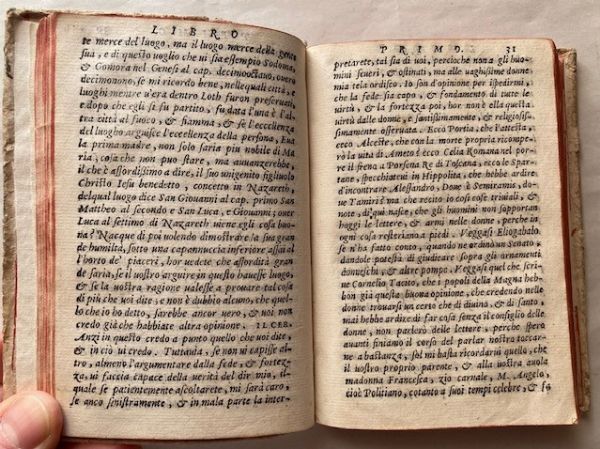 LIBRO
te merce del luogo, ma il luogo merce della gente
sua, e di questo uoglio che ui sia essempio Sodoma,
& Gomora nel Genesi al cap. decimoottauo, ouero
decimonono, se mi ricordo bene, nelle quali città, e
luoghi mentre u'era dentro Loth furon preseruati,
e dopo che egli si fu partito, fu data l'una e l'al
tra città al fuoco, & fiamma, & se l'eccellenza
del luogho arguisce l'eccellenza della persona, Eua
la prima madre, non solo saria piu nobile di Ma
ria, cosa che non puo stare, ma auuanzerebbe,
il che è assordissimo a dire, il suo unigenito figliuolo
Christo Iesu benedetto, concetto in Nazareth,
del qual luogo dice San Giouanni al cap. primo San
Mattheo al secondo e San Luca, e Giouanni; ouer
Luca al settimo di Nazareth uiene egli cosa buo
na? Nacque di poi uolendo dimostrare la sua gran
de humiltà, sotto una capannuccia inferiore assai al
l'horto de' piaceri, hor uedete che assordità gran
de saria, se il uostro arguire in questo hauesse luogo,
& se la uostra ragione ualesse a prouare tal cosa
di più che uoi dite, e non è dubbio alcuno, che quel
lo che io ho detto, sarebbe ancor uero, & uoi non
credo già che habbiate altra opinione. IL CEB.
Anzi in questo credo a punto quello che uoi dite,
& in ciò ui credo. Tuttauia, se non ui capisse al-
tro, almeno l'argumentare dalla sede, & fortez-
za, ui faccia capace della verità del dir mio, il
quale se patientemente ascoltarete, mi sarà caro,
se anco sinistramente, & in mala parte la inter-
PRIMO. 31
pretarete, tal sia di uoi, perciochè non a gli huo
mini seueri, & ostinati, ma alle uaghissime donne
mia tela ordisco. Io son d'opinion per ispedirmi,
che la fede sia capo, & fondamento di tutte le
uirtù, & la fortezza poi, hor non è ella questa
uirtù dalle donne, e santissimamente, & religiosis-
simamente osseruata. Ecco Portia, che l'attesta,
ecco Alceste, che con la morte propria ricompe-
rò la uita di Ameto? ecco Celia Romana nel por-
re il freno a Porsena Re di Toscana, ecco le Spar-
tane, specchiateui in Hippolita, che hebbe ardire
d'incontrare Alessandro, Doue è Semiramis, do-
ue Tamiri? ma che recito io cosi cose triuiali, &
note, di qui nasce, che gli huomini non sopportan
hoggi le lettere, & armi nelle donne, perche in
ogni cosa resteriano piedi. Veggasi Eliogabalo,
se n'ha fatto conto, quando ne ordinò un Senato,
dandole potestà di giudicare sopra gli ornamenti
donneschi, & altre pompe. Veggasi quel che scri-
ne Cornelio Tacito, che i popoli della Magna heb-
bon già questa buona opinione, che credendo nelle
donne trouarsi un certo che di diuino, & di santo,
mai hebbe ardire di far cosa senza il consiglio delle
donne, non parlerò delle lettere, perche spero
auanti finiamo il corso del parlar nostro toccar-
ne a bastanza, sol mi basta ricordarui quello, che
il uostro proprio parente, & alla uostra auola
madonna Francesca, zio carnale, M. Angelo,
cioè Politiano, cotanto a suoi tempi celebre, & sa